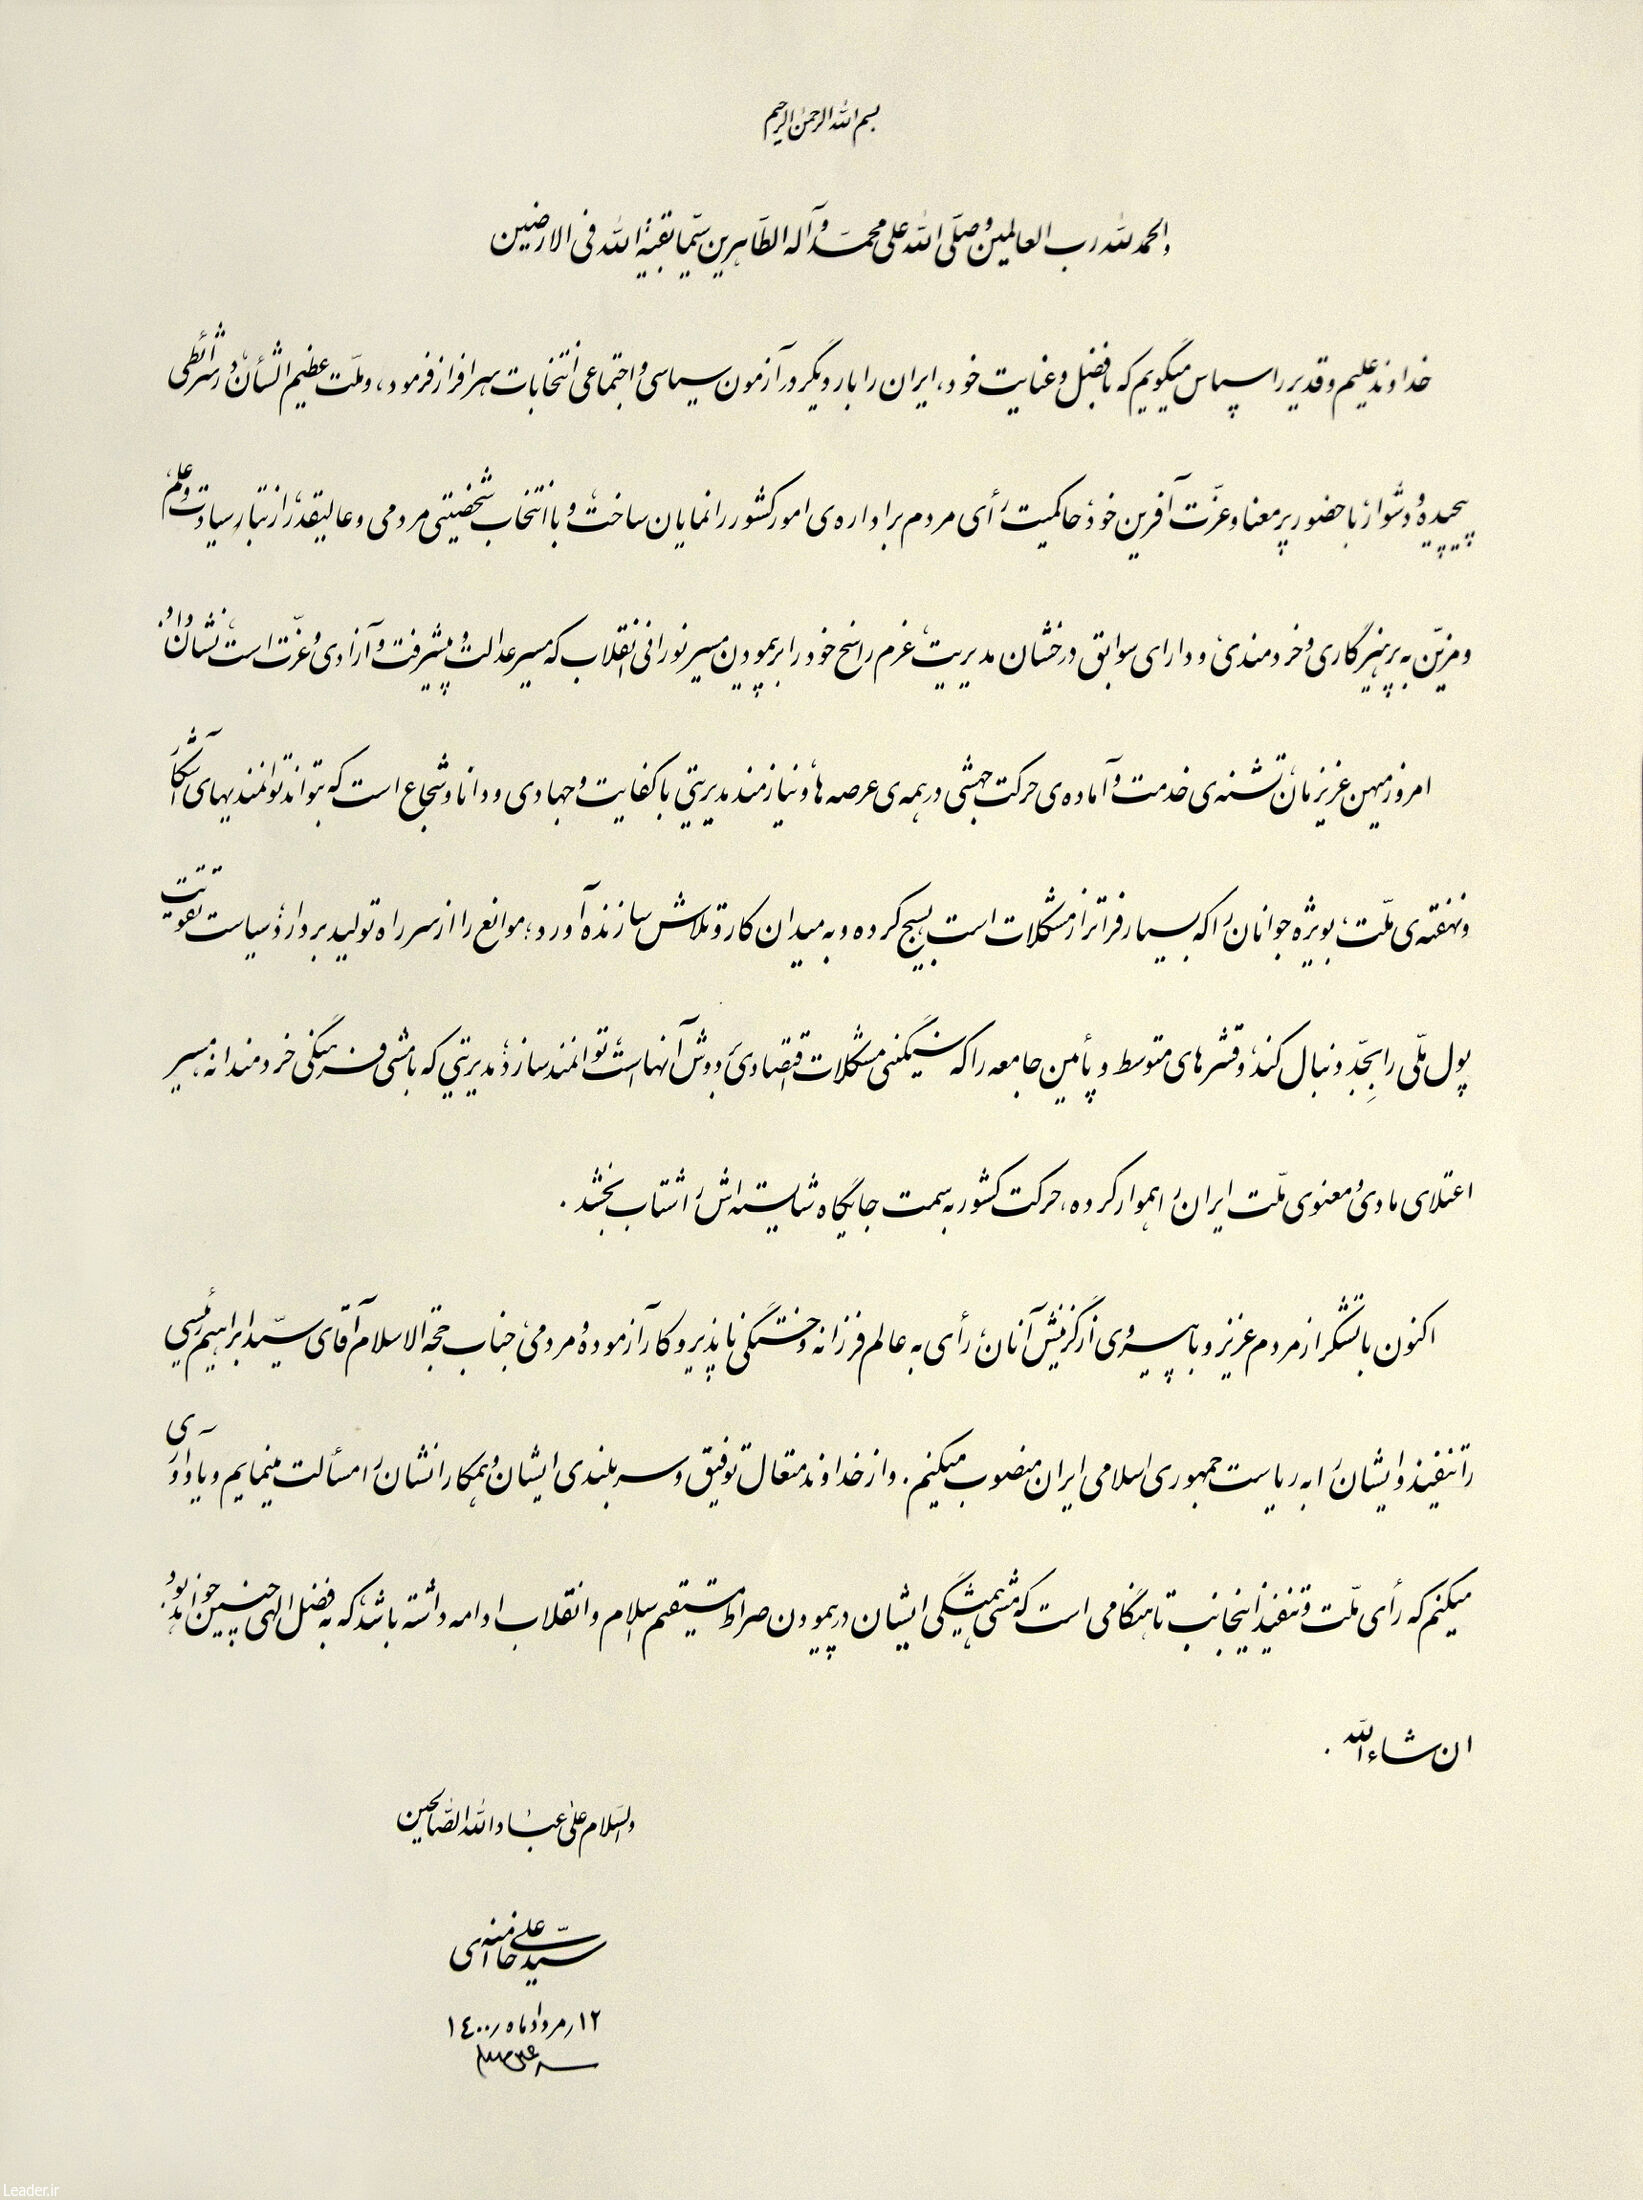 بسم الله الرحمن الرحیم
والحمد لله رب العالمین و صلّی الله علی محمد و آله الطّاهرین سیّما بقیة الله فی الارضین
خداوند علیم و قدیر را سپاس میگویم که با فضل و عنایت خود، ایران را بار دیگر در آزمون سیاسی و اجتماعی انتخابات سرافراز فرمود، و ملّت عظیم الشأن در شرائطی
پیچیده و دشوار با حضور پر معنا و عزّت آفرین خود، حاکمیت رأی مردم بر اداره‌ی امور کشور را نمایان ساخت و با انتخاب شخصیتی مردمی و عالیقدر از تبار سیادت و علم
و مزیّن به پرهیزگاری و خردمندی، و دارای سوابق درخشان مدیریت، عزم راسخ خود را بر پیمودن مسیر نورانی انقلاب که مسیر عدالت و پیشرفت و آزادی و عزّت است، نشان داد.
امروز میهن عزیزمان، تشنه‌ی خدمت و آماده‌ی حرکت جهشی در همه‌ی عرصه ها، و نیازمند مدیریتی با کفایت و جهادی و دانا و شجاع است که بتواند توانمندیهای آشکار
و نهفته‌ی ملّت، بویژه جوانان را که بسیار فراتر از مشکلات است، بسیج کرده و به میدان کار و تلاش سازنده آورد؛ موانع را از سر راه تولید بردارد، سیاست تقویت
پول ملّی را بجِدّ دنبال کند، و قشرهای متوسط و پایین جامعه را که سنگینی مشکلات اقتصادی بر دوش آنها است، توانمند سازد، مدیریتی که با مشی فرهنگی خردمندانه، مسیر
اعتلای مادی و معنوی ملّت ایران را هموار کرده، حرکت کشور به سمت جایگاه شایسته‌اش را شتاب بخشد.
اکنون با تشکر از مردم عزیز و با پیروی از گزینش آنان، رأی به عالم فرزانه و خستگی ناپذیر و کارآزموده و مردمی، جناب حجة الاسلام آقای سیّد ابراهیم رئیسی
را تنفیذ و ایشان را به ریاست جمهوری اسلامی ایران منصوب میکنم. و از خداوند متعال توفیق و سربلندی ایشان و همکارانشان را مسألت مینمایم و یادآوری
میکنم که رأی ملّت و تنفیذ اینجانب تا هنگامی است که مشی همیشگی ایشان در پیمودن صراط مستقیم اسلام و انقلاب ادامه داشته باشد، که به فضل الهی چنین خواهد بود.
ان شاءالله.
والسّلام علی عباد الله الصّالحین
سیّد علی خامنه‌ای
۱۲/مردادماه/۱۴۰۰
Leader.ir